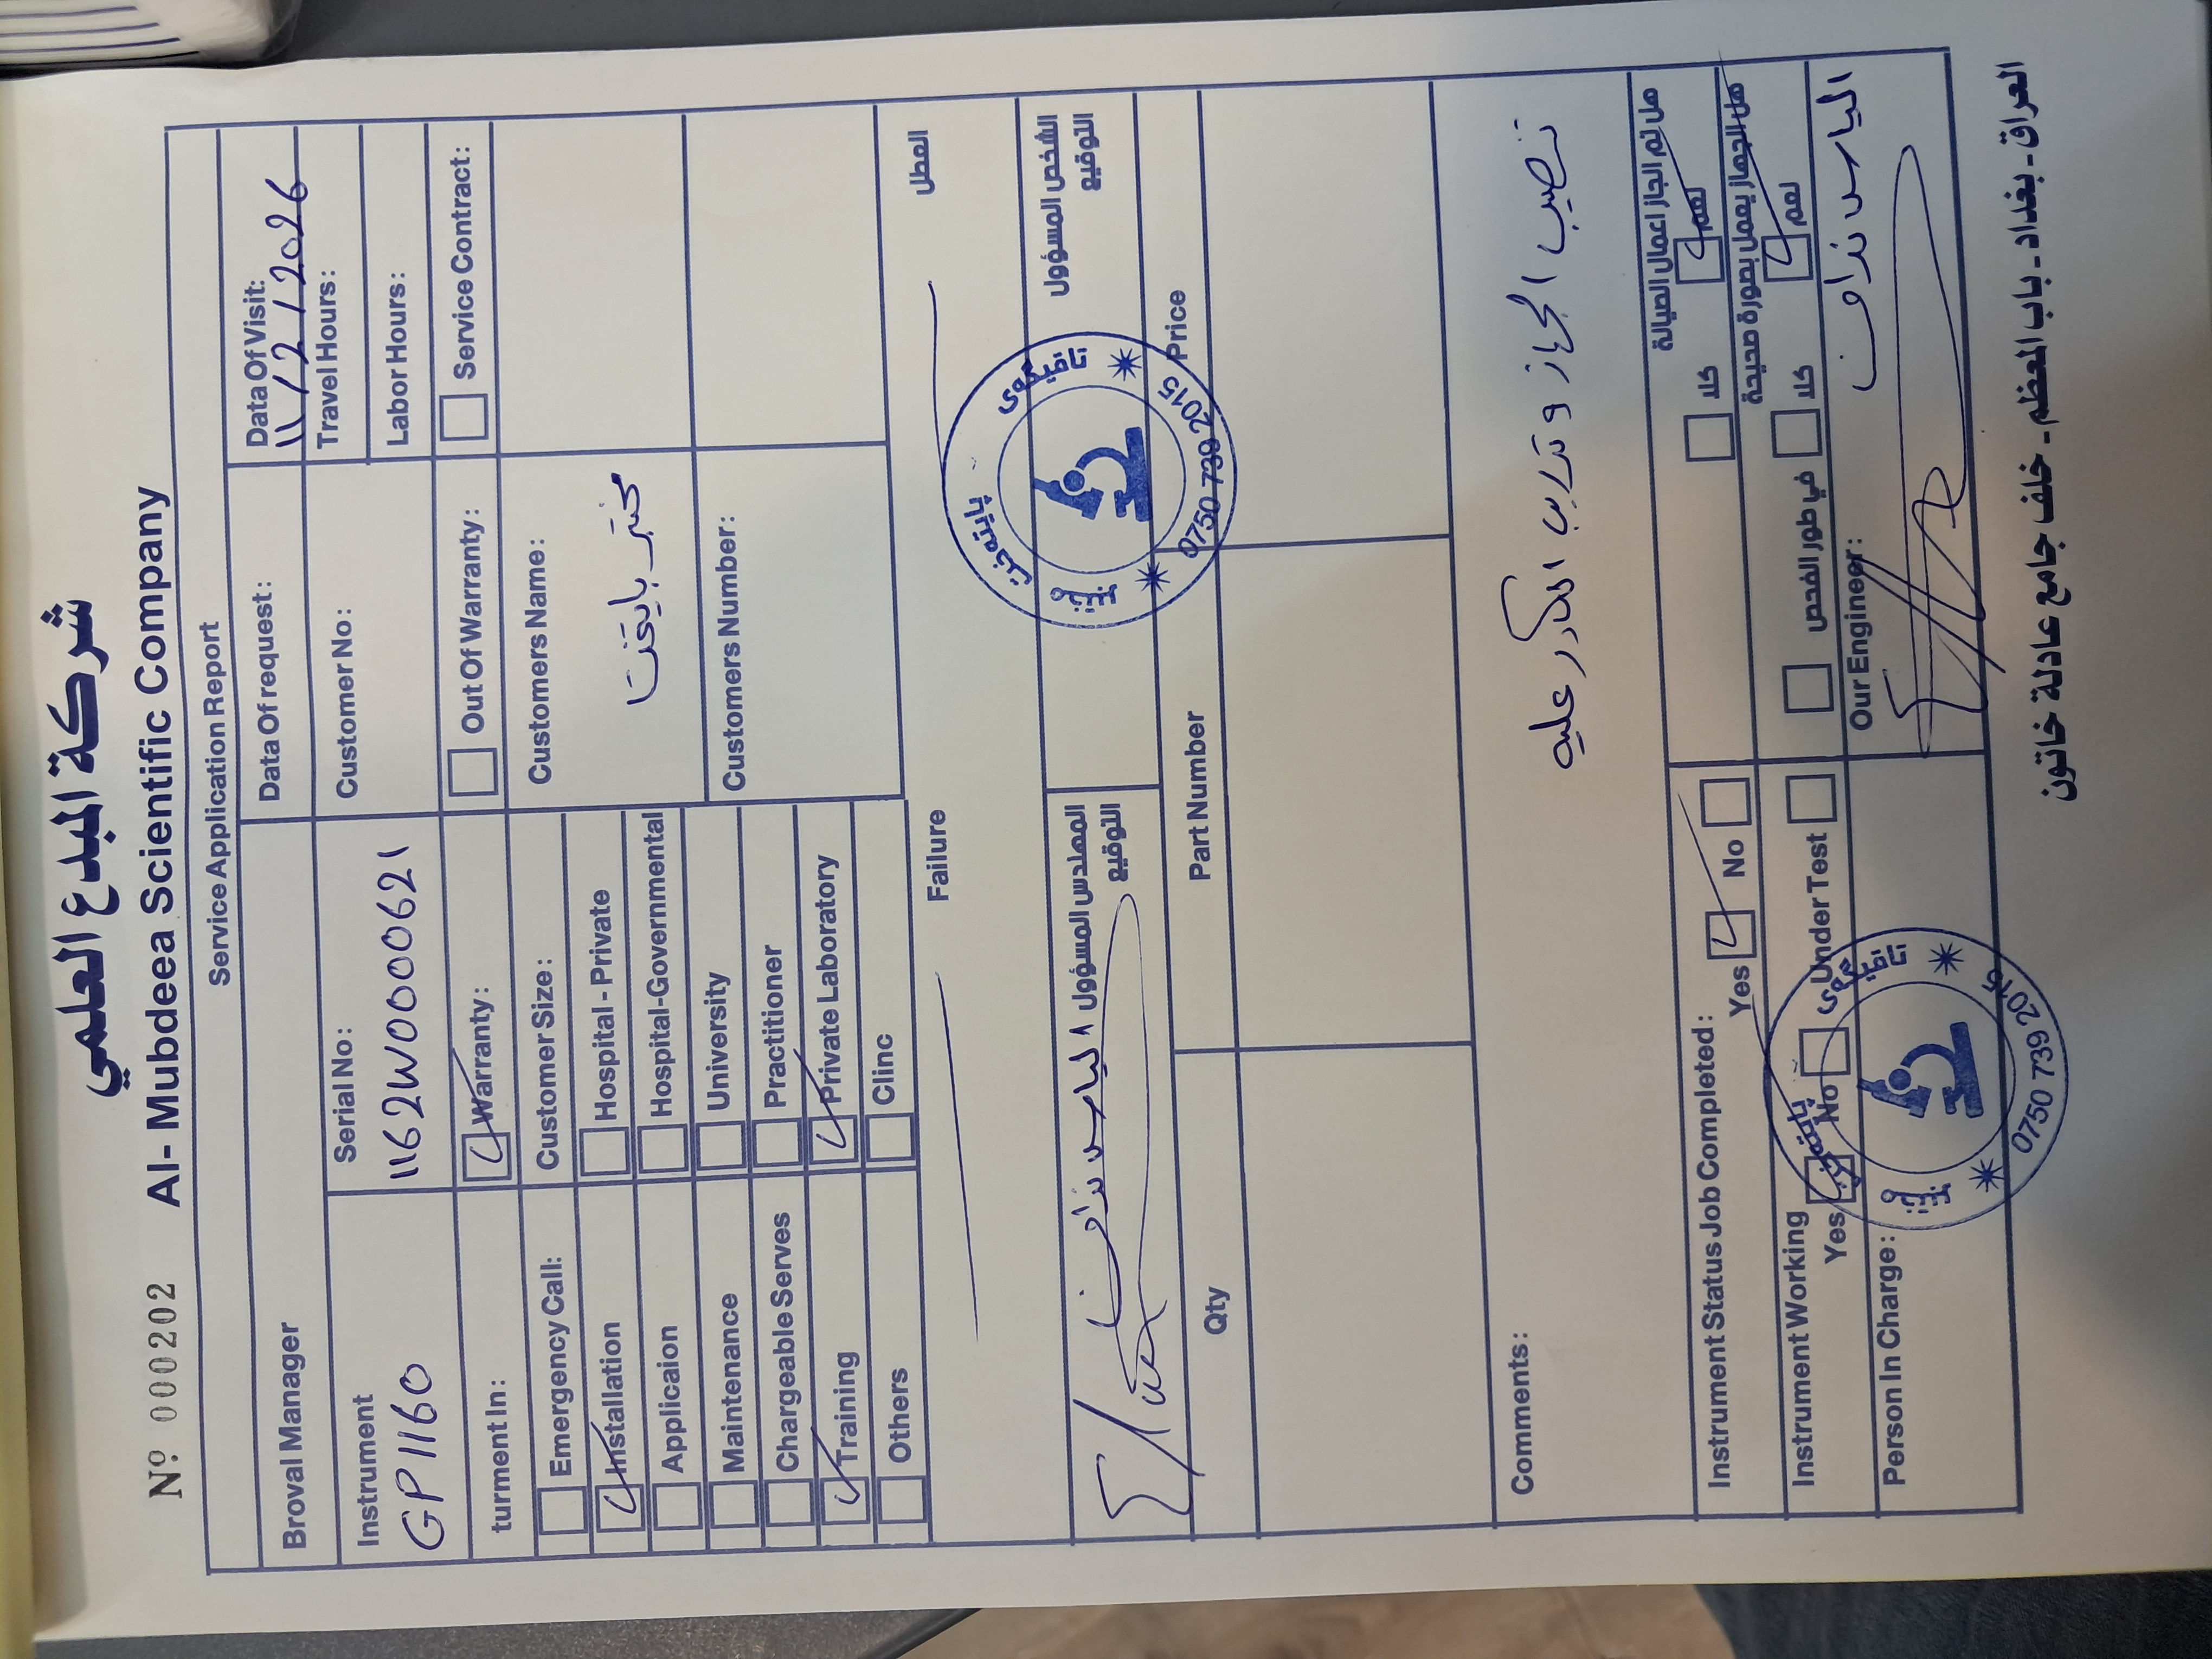 شركة المبدع العلمي
Nº 000202 Al- Mubdeea Scientific Company
Service Application Report
Broval Manager
Data Of request:
Data Of Visit:
11/2/2026
Instrument
GP1160
Serial No:
1162W000621
Customer No:
Travel Hours:
Labor Hours:
turment In:
Warranty:
Out Of Warranty:
Service Contract:
Emergency Call:
Installation
Applicaion
Maintenance
Chargeable Serves
Training
Others
Customer Size:
Hospital - Private
Hospital-Governmental
University
Practitioner
Private Laboratory
Clinc
Customers Name:
مختبر بايتخت
Customers Number:
Failure
العطل
المهندس المسؤول
التوقيع
الشخص المسؤول
التوقيع
0750 739 2015
Qty
Part Number
Price
Comments:
تنصيب الجهاز و تدريب الكادر عليه
Instrument Status Job Completed:
Yes No
هل تم انجاز اعمال الصيانة
نعم كلا
Instrument Working
Yes No Under Test
هل الجهاز يعمل بصورة صحيحة
نعم كلا في طور الفحص
Person In Charge:
Our Engineer:
0750 739 2015
العراق - بغداد - باب المعظم - خلف جامع عادلة خاتون